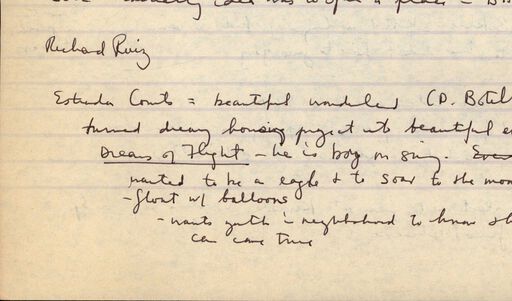 was to open a place -
Richard Ruiz
Estrada Courts = beautiful wonderland (D. Botel
turned dreary housing project into beautiful e
Dreams of Flight - he is boy on swing.
wanted to be a eagle & to soar to the moo
- float w/ balloons
- wants youth in neighborhood to know th
can come true